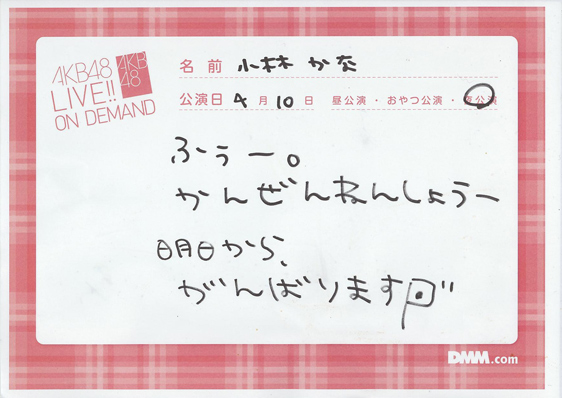 AKB48
LIVE!!
ON DEMAND
AKB
48
名前 小林 かな
公演日 4月10日 昼公演・おやつ公演・夜公演
ふぅー。
かんぜんねんしょうー
明日から、
がんばります
DMM.com